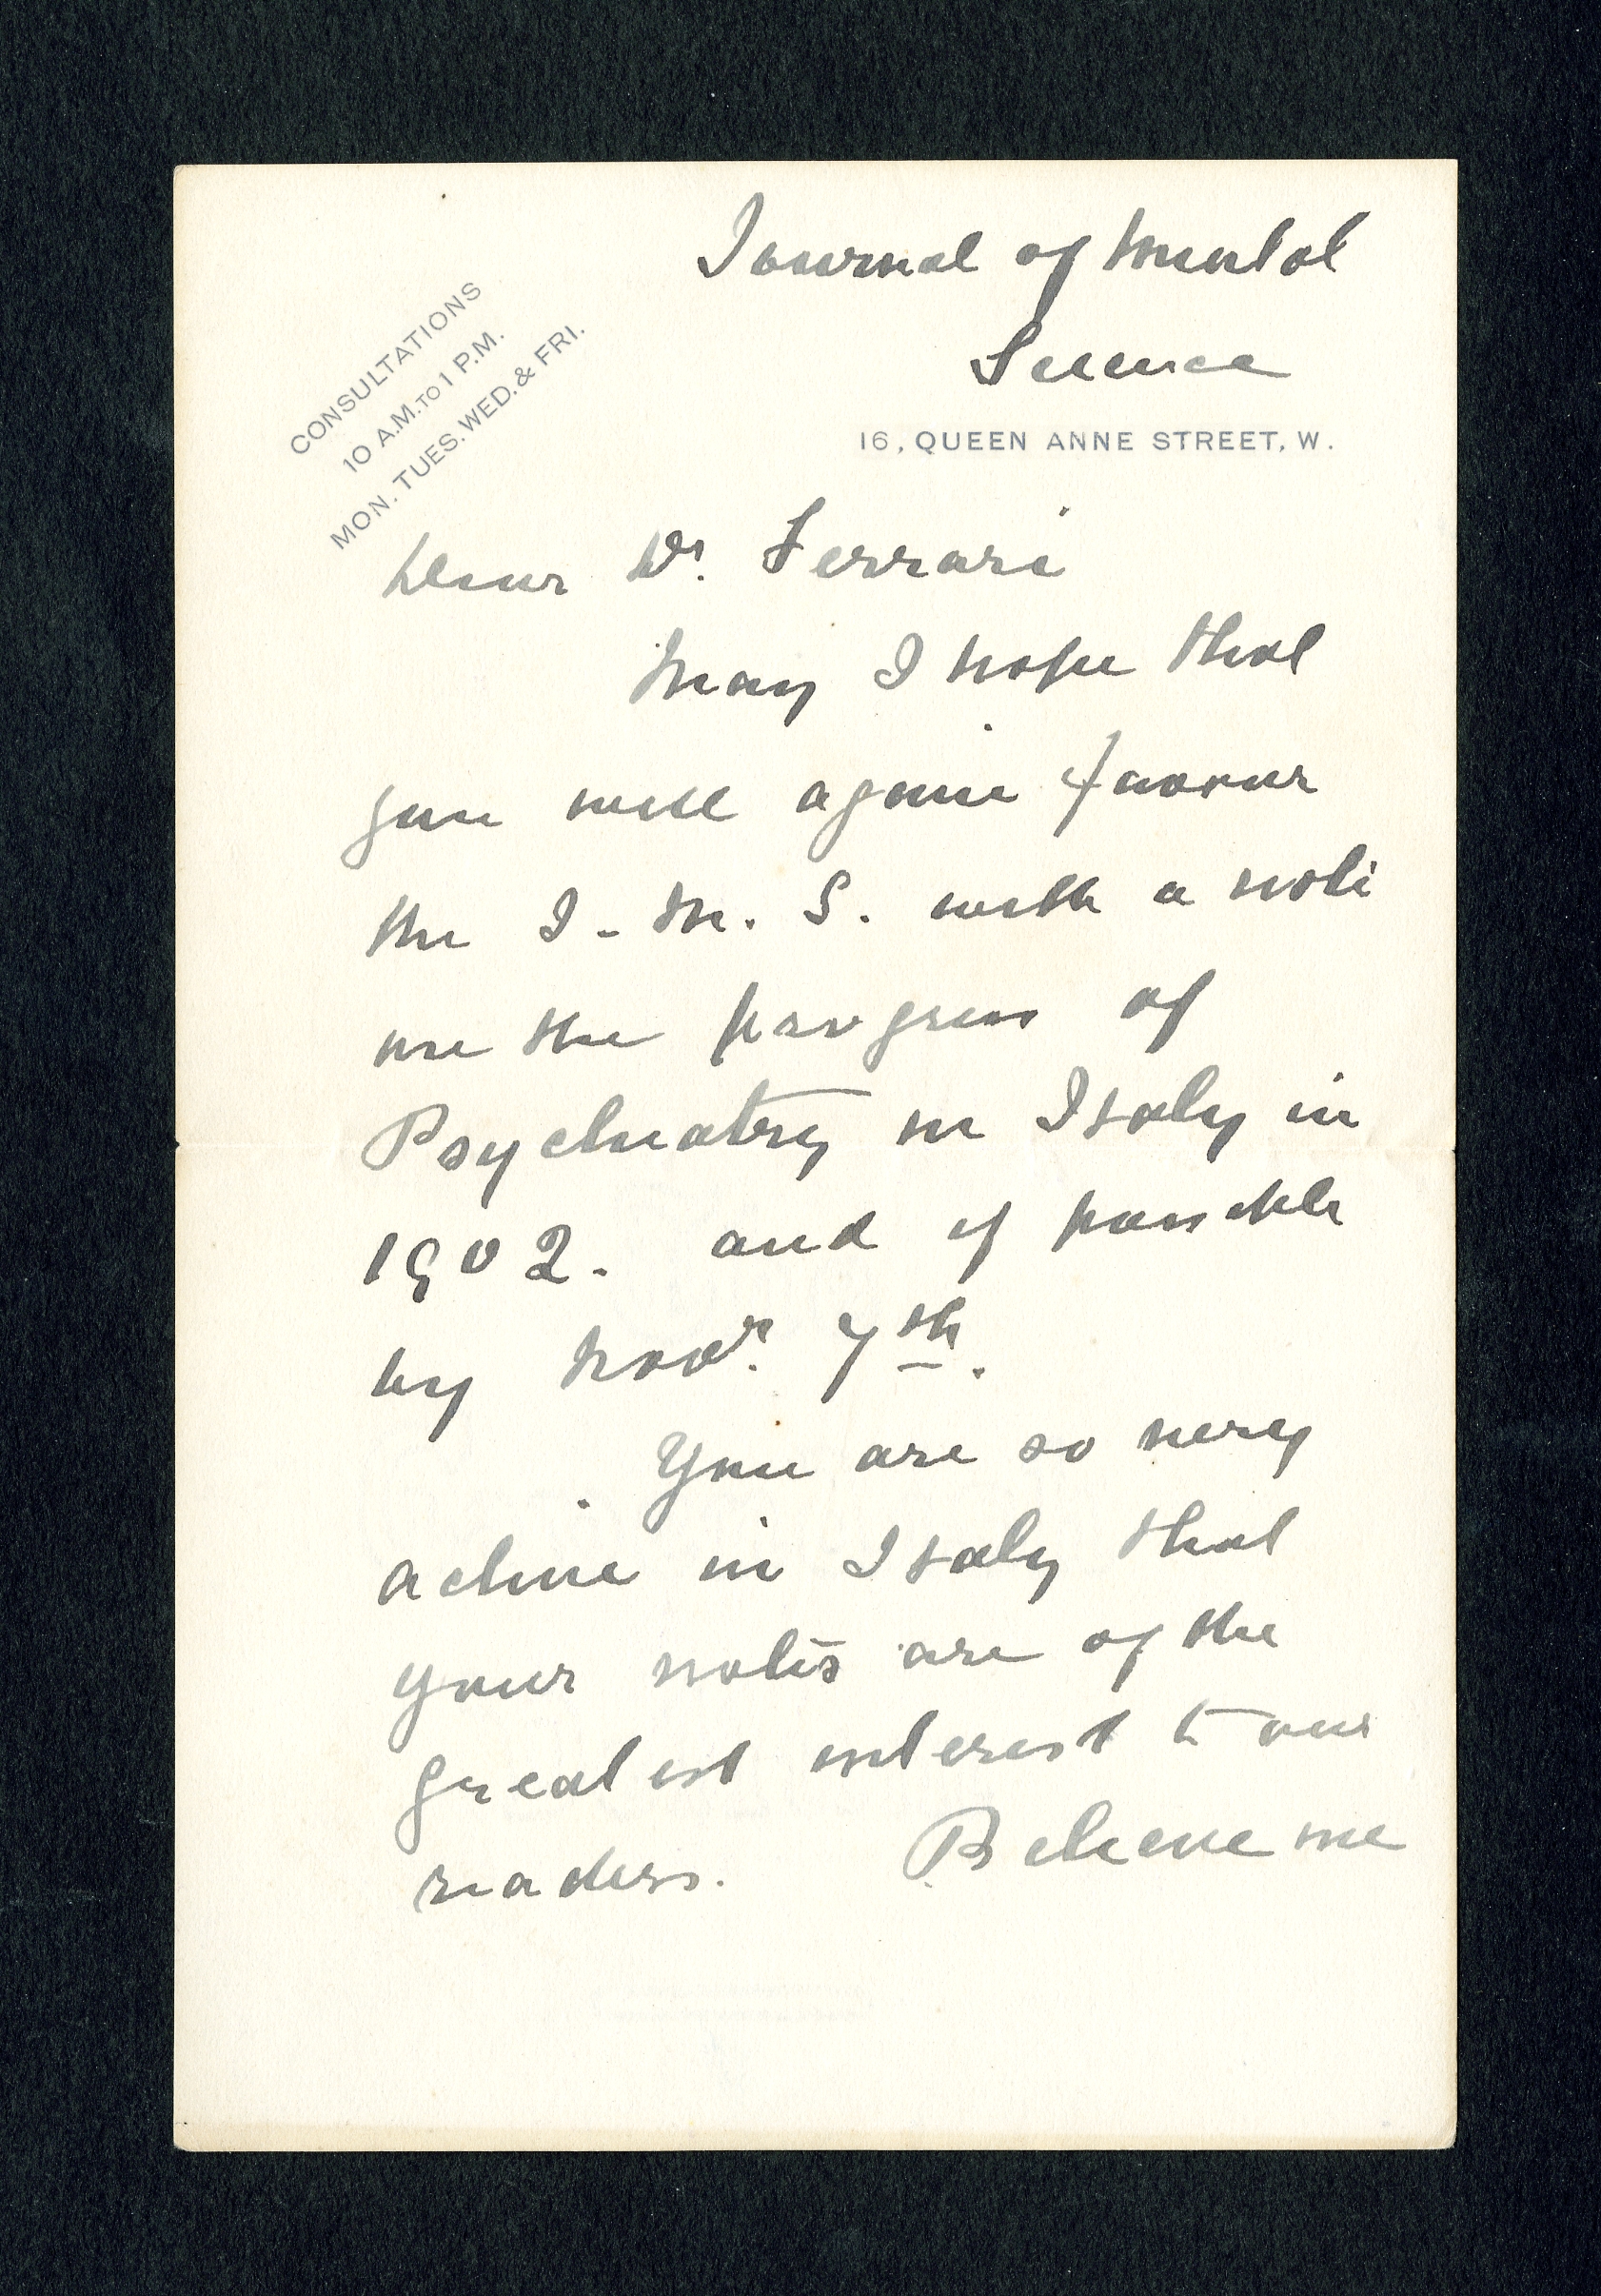 Journal of Mental
Science
CONSULTATIONS
10 A.M. TO 1 P.M.
MON. TUES. WED. & FRI.
16, QUEEN ANNE STREET, W.
Dear Dr. Ferrari
May I hope that
you will again favour
the J. M. S. with a note
on the progress of
Psychiatry in Italy in
1902. and if possible
by Novr. 7th.
You are so very
active in Italy that
your notes are of the
greatest interest to our
readers. Believe me